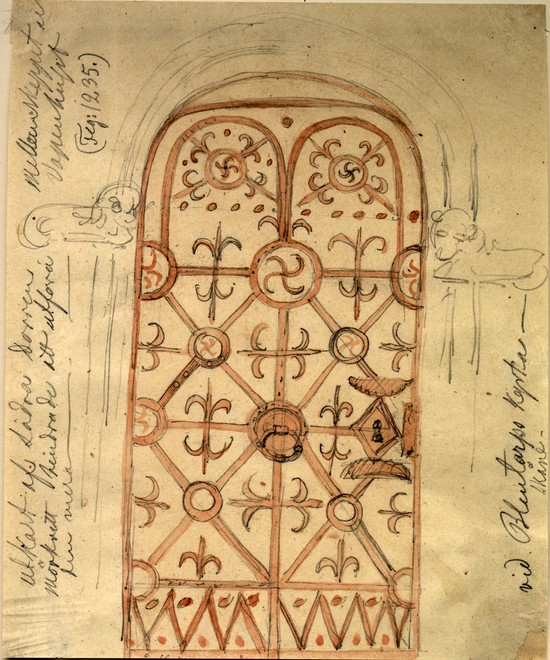 mellan skeppet o
Vapenhuset
(Feg: 1235.)
utkast af Södra Dörren
mörkrett hindrade att utföra
den mera
vid Blentarps Kyrka
Skåne.